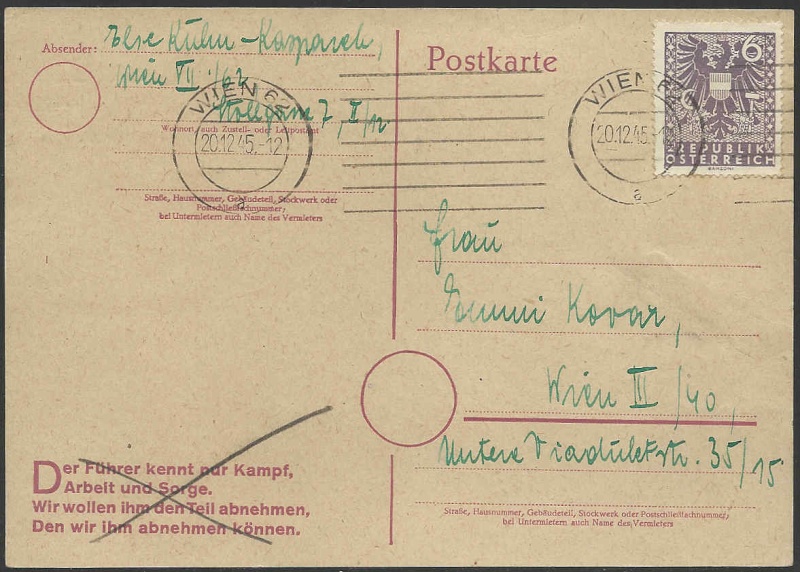 Absender: Else Kuhn-Kasparek,
Wien VII/62
gasse 7, I/12
Wohnort, auch Zustell- oder Leitpostamt
WIEN 62
20.12.45.-12
a
Straße, Hausnummer, Gebäudeteil, Stockwerk oder
Postschließfachnummer;
bei Untermietern auch Name des Vermieters
Postkarte
WIEN
20.12.45.-12
a
6
REPUBLIK
ÖSTERREICH
Frau
Emmi Kovar,
Wien III/40,
Untere Viaduktstr. 35/15
Straße, Hausnummer, Gebäudeteil, Stockwerk oder Postschließfachnummer;
bei Untermietern auch Name des Vermieters
Der Führer kennt nur Kampf,
Arbeit und Sorge.
Wir wollen ihm den Teil abnehmen,
Den wir ihm abnehmen können.